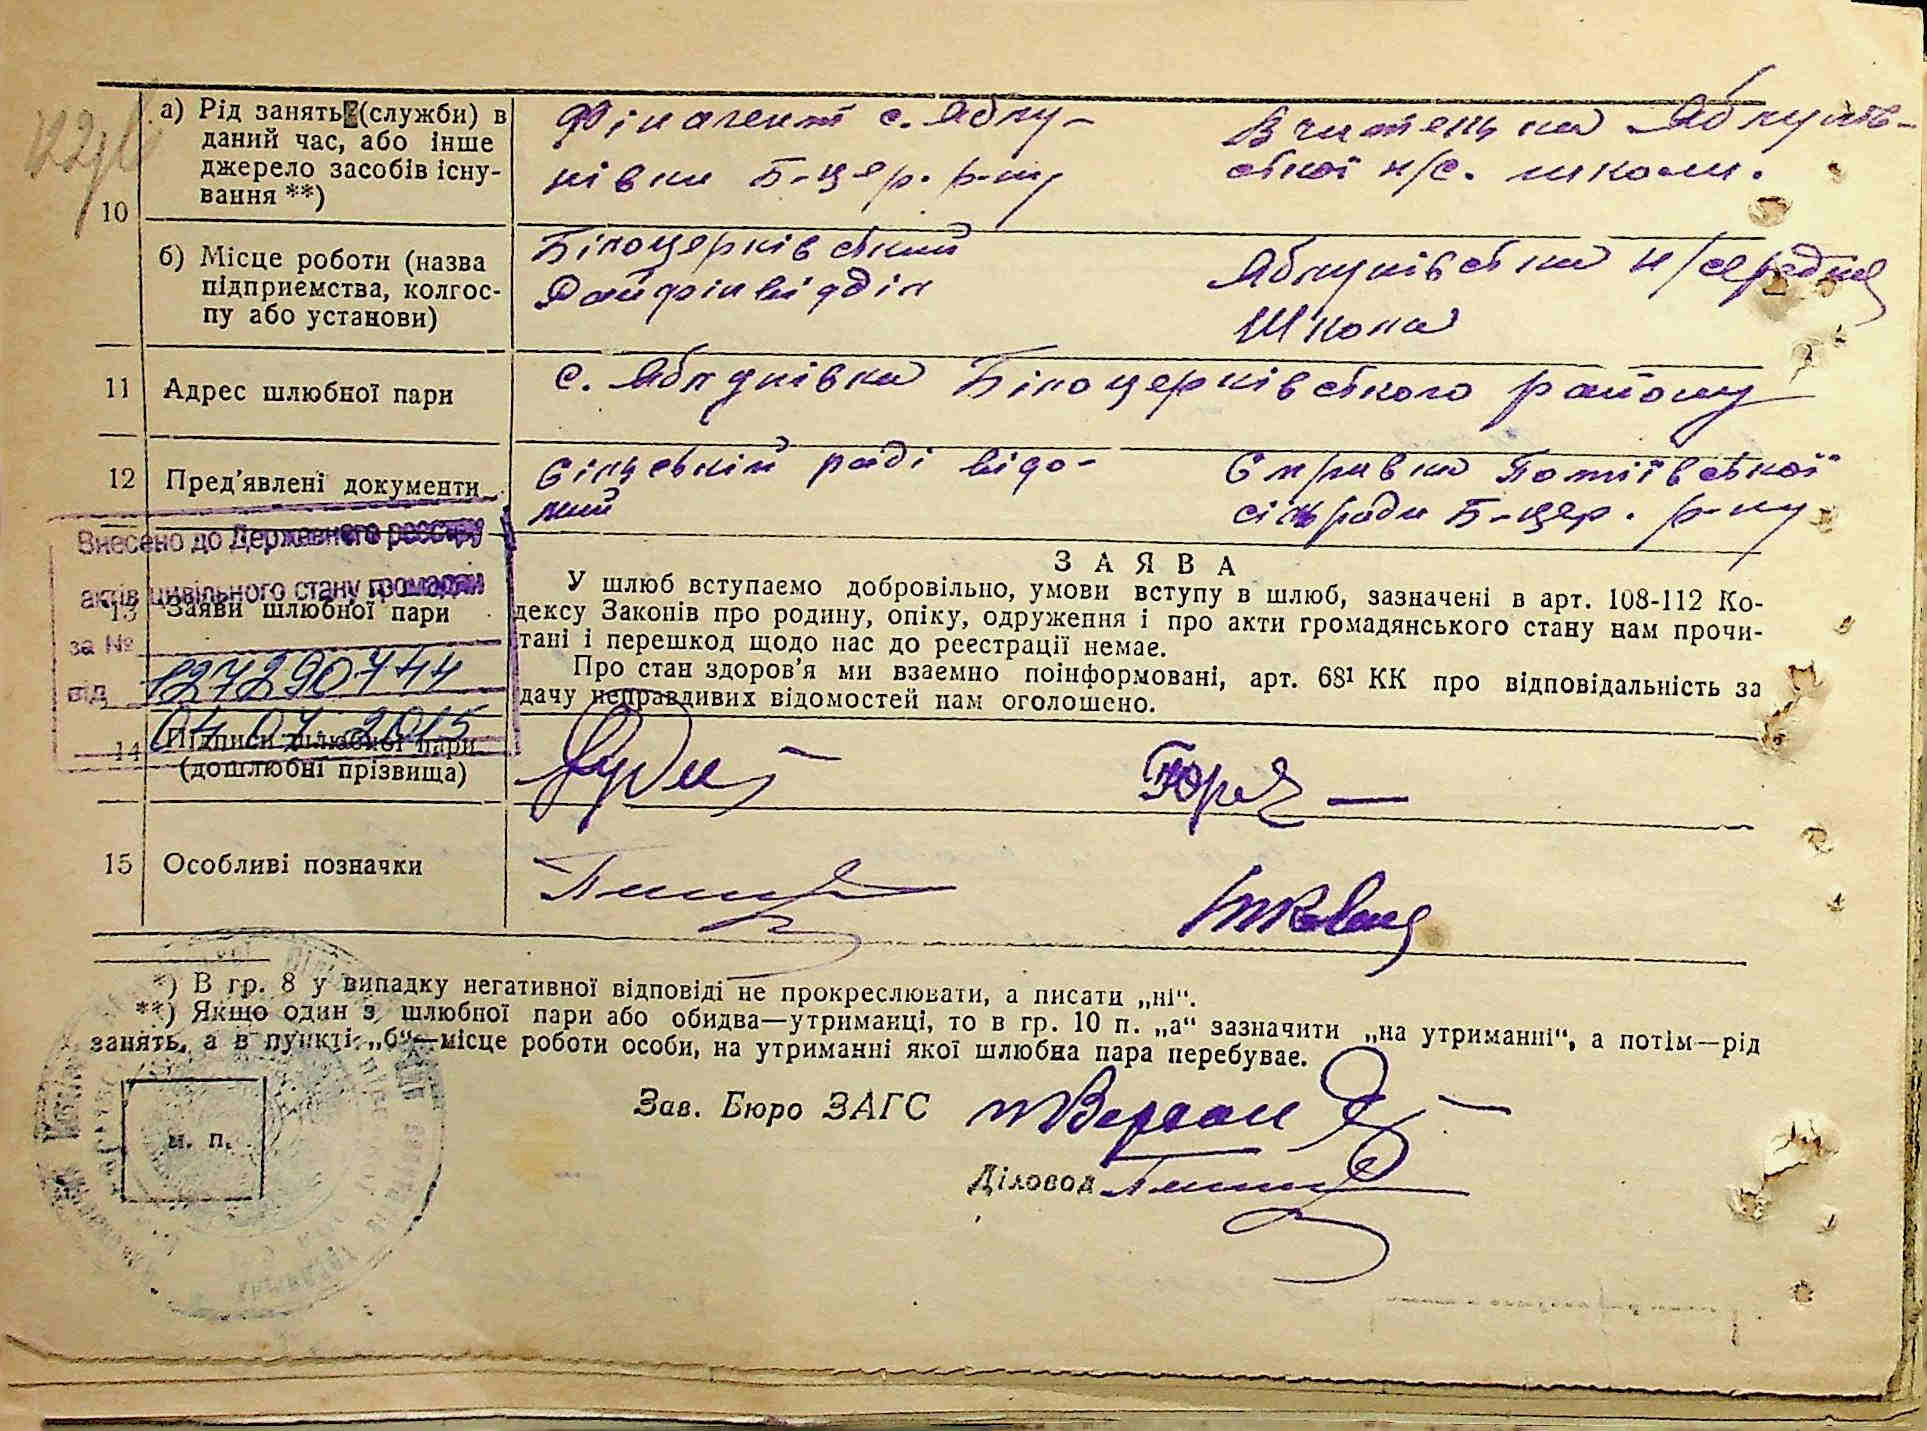 10
а) Рід занять (служби) в даний час, або інше джерело засобів існування **)
Фінагент с. Яблу-
нівки Б-цер. р-ну
Вчителька Яблунів-
ської н/с. школи.
б) Місце роботи (назва підприємства, колгоспу або установи)
Білоцерківський
Райфінвідділ
Яблунівська н/середня
Школа
11 Адрес шлюбної пари
с. Яблунівка Білоцерківського району
12 Пред'явлені документи
Сільській раді відо-
мий
Справка Потіївської
сільради Б-цер. р-ну
Внесено до Державного реєстру
актів цивільного стану громадян
за №
127290744
від
04 07 2015
13 Заяви шлюбної пари
ЗАЯВА
У шлюб вступаємо добровільно, умови вступу в шлюб, зазначені в арт. 108-112 Ко-
дексу Законів про родину, опіку, одруження і про акти громадянського стану нам прочи-
тані і перешкод щодо нас до реєстрації немає.
Про стан здоров'я ми взаємно поінформовані, арт. 68¹ КК про відповідальність за
дачу неправдивих відомостей нам оголошено.
14 Підписи шлюбної пари
(дошлюбні прізвища)
15 Особливі позначки
*) В гр. 8 у випадку негативної відповіді не прокреслювати, а писати „ні“.
**) Якщо один з шлюбної пари або обидва—утриманці, то в гр. 10 п. „а“ зазначити „на утриманні“, а потім—рід
занять, а в пункті „б“—місце роботи особи, на утриманні якої шлюбна пара перебуває.
м. п.
Зав. Бюро ЗАГС
Діловод